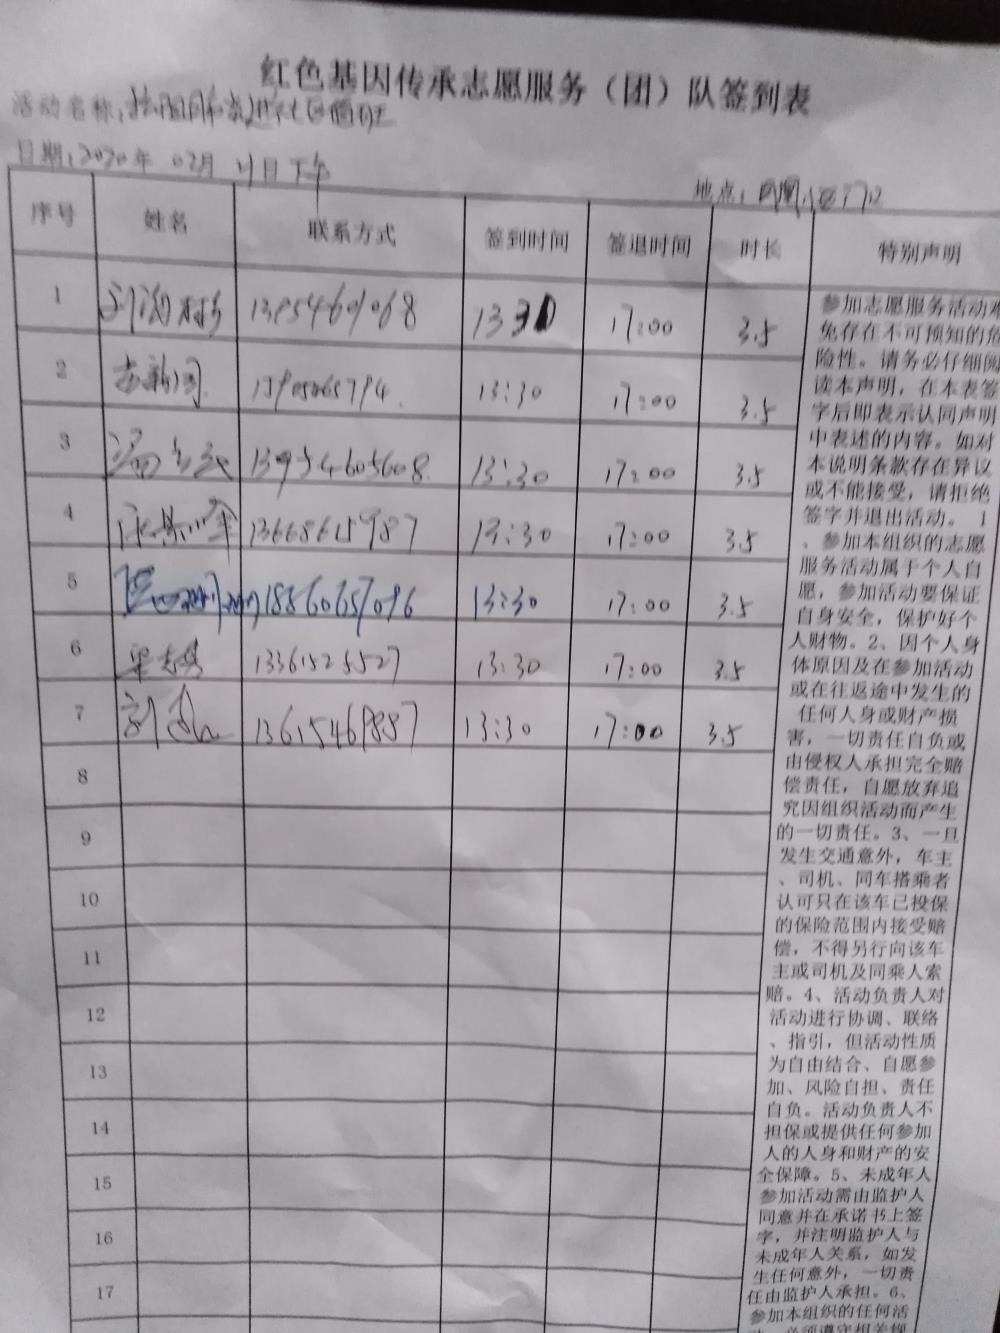 红色基因传承志愿服务（团）队签到表
活动名称：
日期：2020年 02月 21日下午
地点：
序号 姓名 联系方式 签到时间 签退时间 时长 特别声明
1 1330 17:00 3.5
2 13:30 17:00 3.5
3 13:30 17:00 3.5
4 13668615987 13:30 17:00 3.5
5 18860657096 13:30 17:00 3.5
6 13361525527 13:30 17:00 3.5
7 13615469887 13:30 17:00 3.5
8
9
10
11
12
13
14
15
16
17
参加志愿服务活动难
免存在不可预知的危
险性。请务必仔细阅
读本声明，在本表签
字后即表示认同声明
中表述的内容。如对
本说明条款存在异议
或不能接受，请拒绝
签字并退出活动。 1
、参加本组织的志愿
服务活动属于个人自
愿，参加活动要保证
自身安全，保护好个
人财物。2、因个人身
体原因及在参加活动
或在往返途中发生的
任何人身或财产损
害，一切责任自负或
由侵权人承担完全赔
偿责任，自愿放弃追
究因组织活动而产生
的一切责任。3、一旦
发生交通意外，车主
、司机、同车搭乘者
认可只在该车已投保
的保险范围内接受赔
偿，不得另行向该车
主或司机及同乘人索
赔。4、活动负责人对
活动进行协调、联络
、指引，但活动性质
为自由结合、自愿参
加、风险自担、责任
自负。活动负责人不
担保或提供任何参加
人的人身和财产的安
全保障。5、未成年人
参加活动需由监护人
同意并在承诺书上签
字，并注明监护人与
未成年人关系，如发
生任何意外，一切责
任由监护人承担。6、
参加本组织的任何活